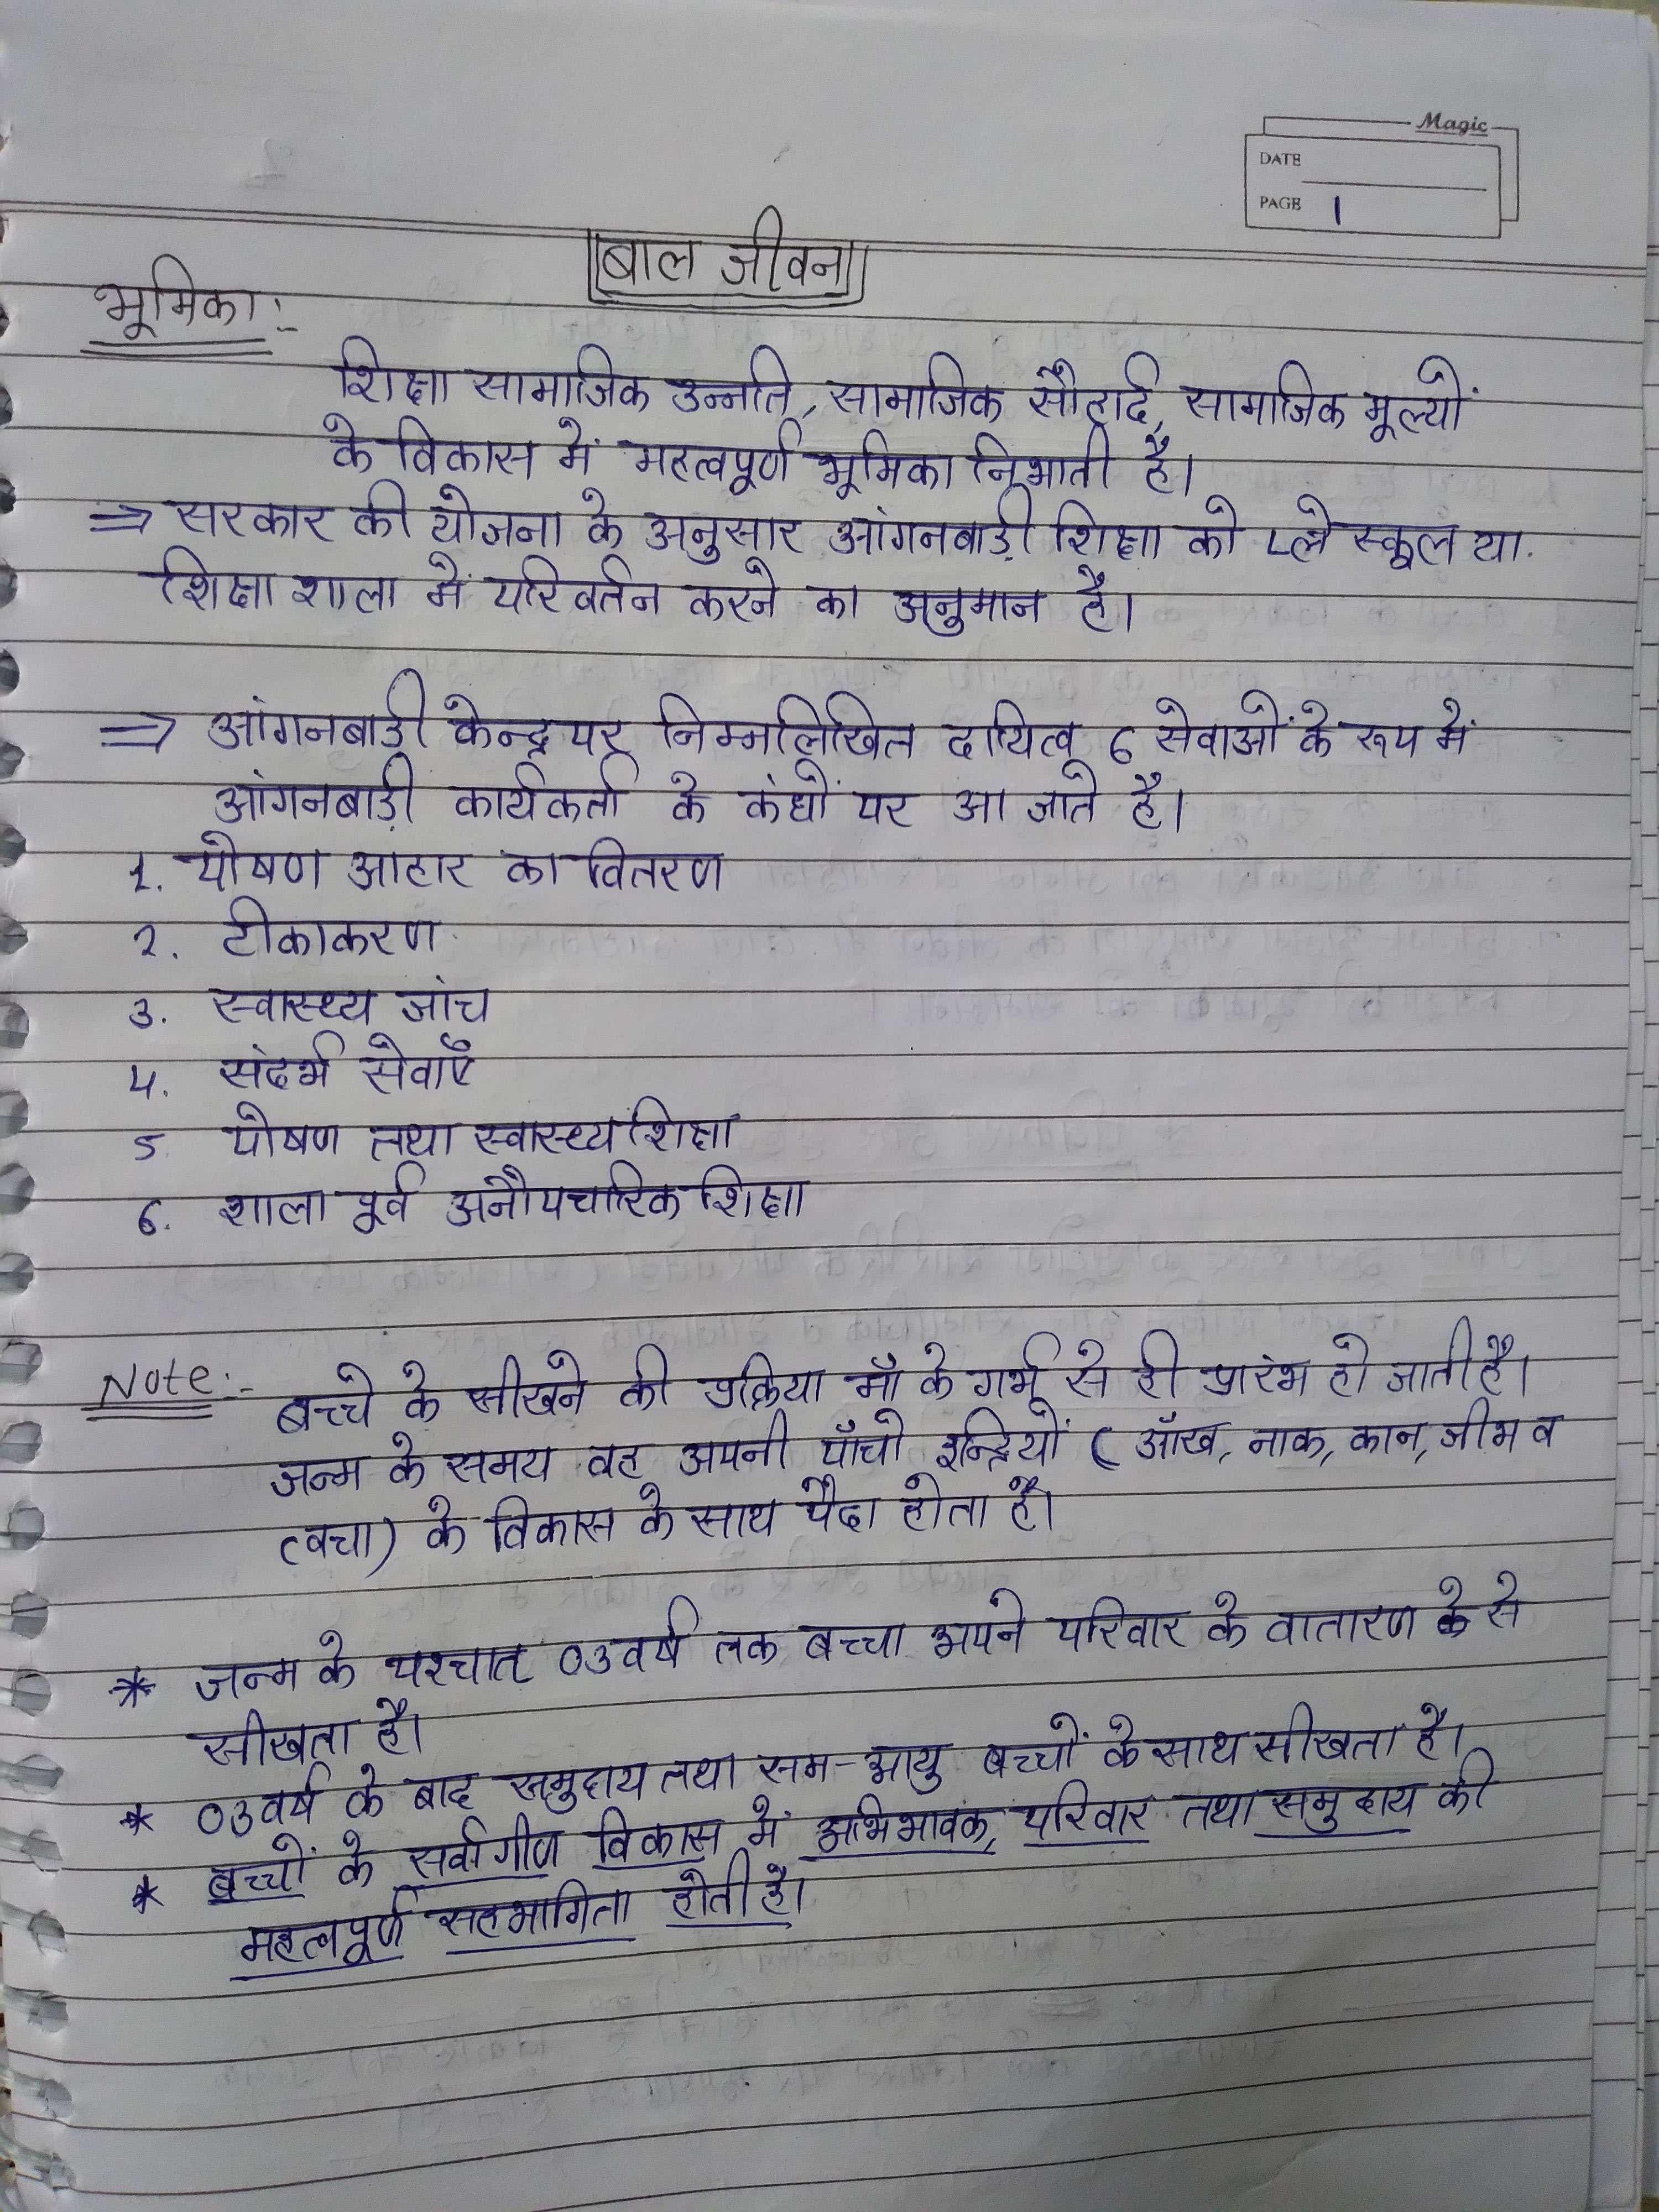 Magic
DATE
PAGE 1
बाल जीवन
भूमिका:-
शिक्षा सामाजिक उन्नति, सामाजिक सौहार्द, सामाजिक मूल्यों
के विकास में महत्वपूर्ण भूमिका निभाती है।
⇒ सरकार की योजना के अनुसार आंगनबाड़ी शिक्षा को प्ले स्कूल या.
शिक्षा शाला में परिवर्तन करने का अनुमान है।
⇒ आंगनबाडी केन्द्र पर निम्नलिखित दायित्व 6 सेवाओं के रूप में
आंगनबाड़ी कार्यकर्ता के कंधों पर आ जाते है।
1. पोषण आहार का वितरण
2. टीकाकरण
3. स्वास्थ्य जांच
4. संदर्भ सेवाएँ
5 पोषण तथा स्वास्थ्य शिक्षा
6. शाला पूर्व अनौपचारिक शिक्षा
Note:-
बच्चे के सीखने की प्रक्रिया माँ के गर्भ से ही प्रारंभ हो जाती है।
जन्म के समय वह अपनी पाँचो इन्द्रियों ( आँख, नाक, कान, जीभ व
त्वचा) के विकास के साथ पैदा होता है।
* जन्म के पश्चात 03 वर्ष तक बच्चा अपने परिवार के वातारण के से
सीखता है।
* 03 वर्ष के बाद समुदाय तथा सम-आयु बच्चों के साथ सीखता है।
* बच्चों के सर्वागीण विकास में अभिभावक, परिवार तथा समुदाय की
महत्वपूर्ण सहभागिता होती है।